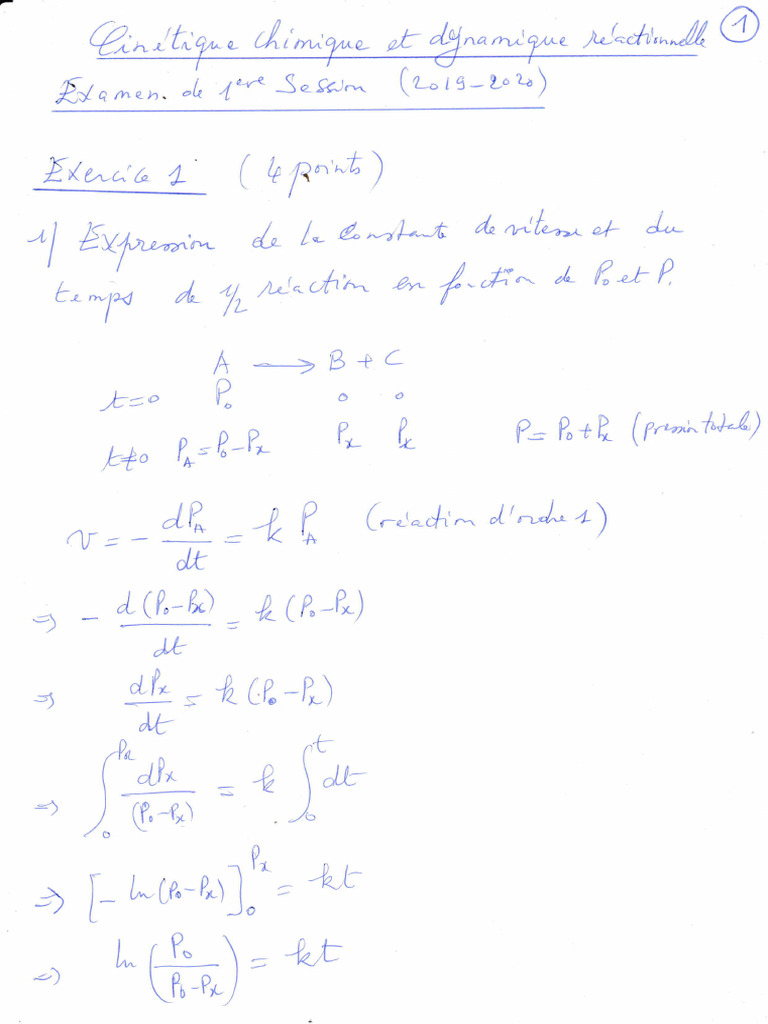 Cinétique chimique et dynamique réactionnelle 1
Examen de 1ère Session (2019-2020)
Exercice 1 (4 points)
1/ Expression de la Constante de vitesse et du
temps de 1/2 réaction en fonction de P₀ et P.
A ⟶ B + C
t=0 P₀ 0 0
t≠0 P_A = P₀-Pₓ Pₓ Pₓ P = P₀ + Pₓ (pression totale)
v = - dP_A/dt = k P_A (réaction d'ordre 1)
⇒ - d(P₀-Pₓ)/dt = k (P₀-Pₓ)
⇒ dPₓ/dt = k (P₀-Pₓ)
⇒ ∫₀^Pₓ dPₓ/(P₀-Pₓ) = k ∫₀^t dt
⇒ [- ln(P₀-Pₓ)]₀^Pₓ = kt
⇒ ln(P₀/(P₀-Pₓ)) = kt